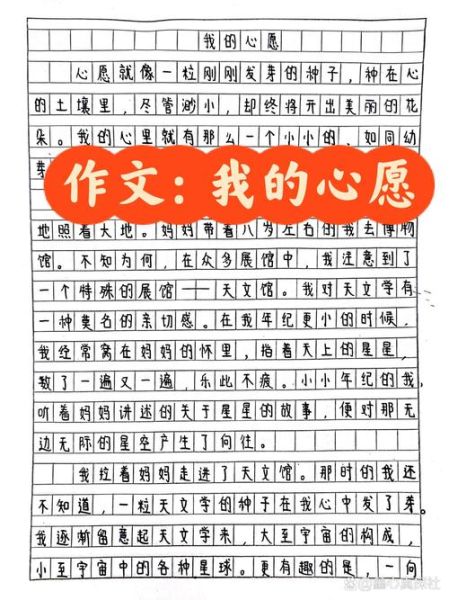 我的心愿
心愿就像一粒刚刚发芽的种子，种在心
的土壤里，尽管渺小，却终将开出美丽的花
朵。我的心里就有那么一个小小的、如同幼
芽
作文：我的心愿
地照着大地。妈妈带着八岁左右的我去博物
馆。不知为何，在众多展馆中，我注意到了
一个特殊的展馆——天文馆。我对天文学有
一种莫名的亲切感。在我年纪更小的时候，
我经常窝在妈妈的怀里，指着天上的星星，
数了一遍又一遍，乐此不疲。小小年纪的我，
听着妈妈讲述的关于星星的故事，便对那无
边无际的星空产生了向往。
我拉着妈妈走进了天文馆。那时的我还
不知道，一粒天文学的种子在我心中发了芽。
我逐渐留意起天文学来，大至宇宙的构成，
小至宇宙中的各种星球。更有趣的是，一向